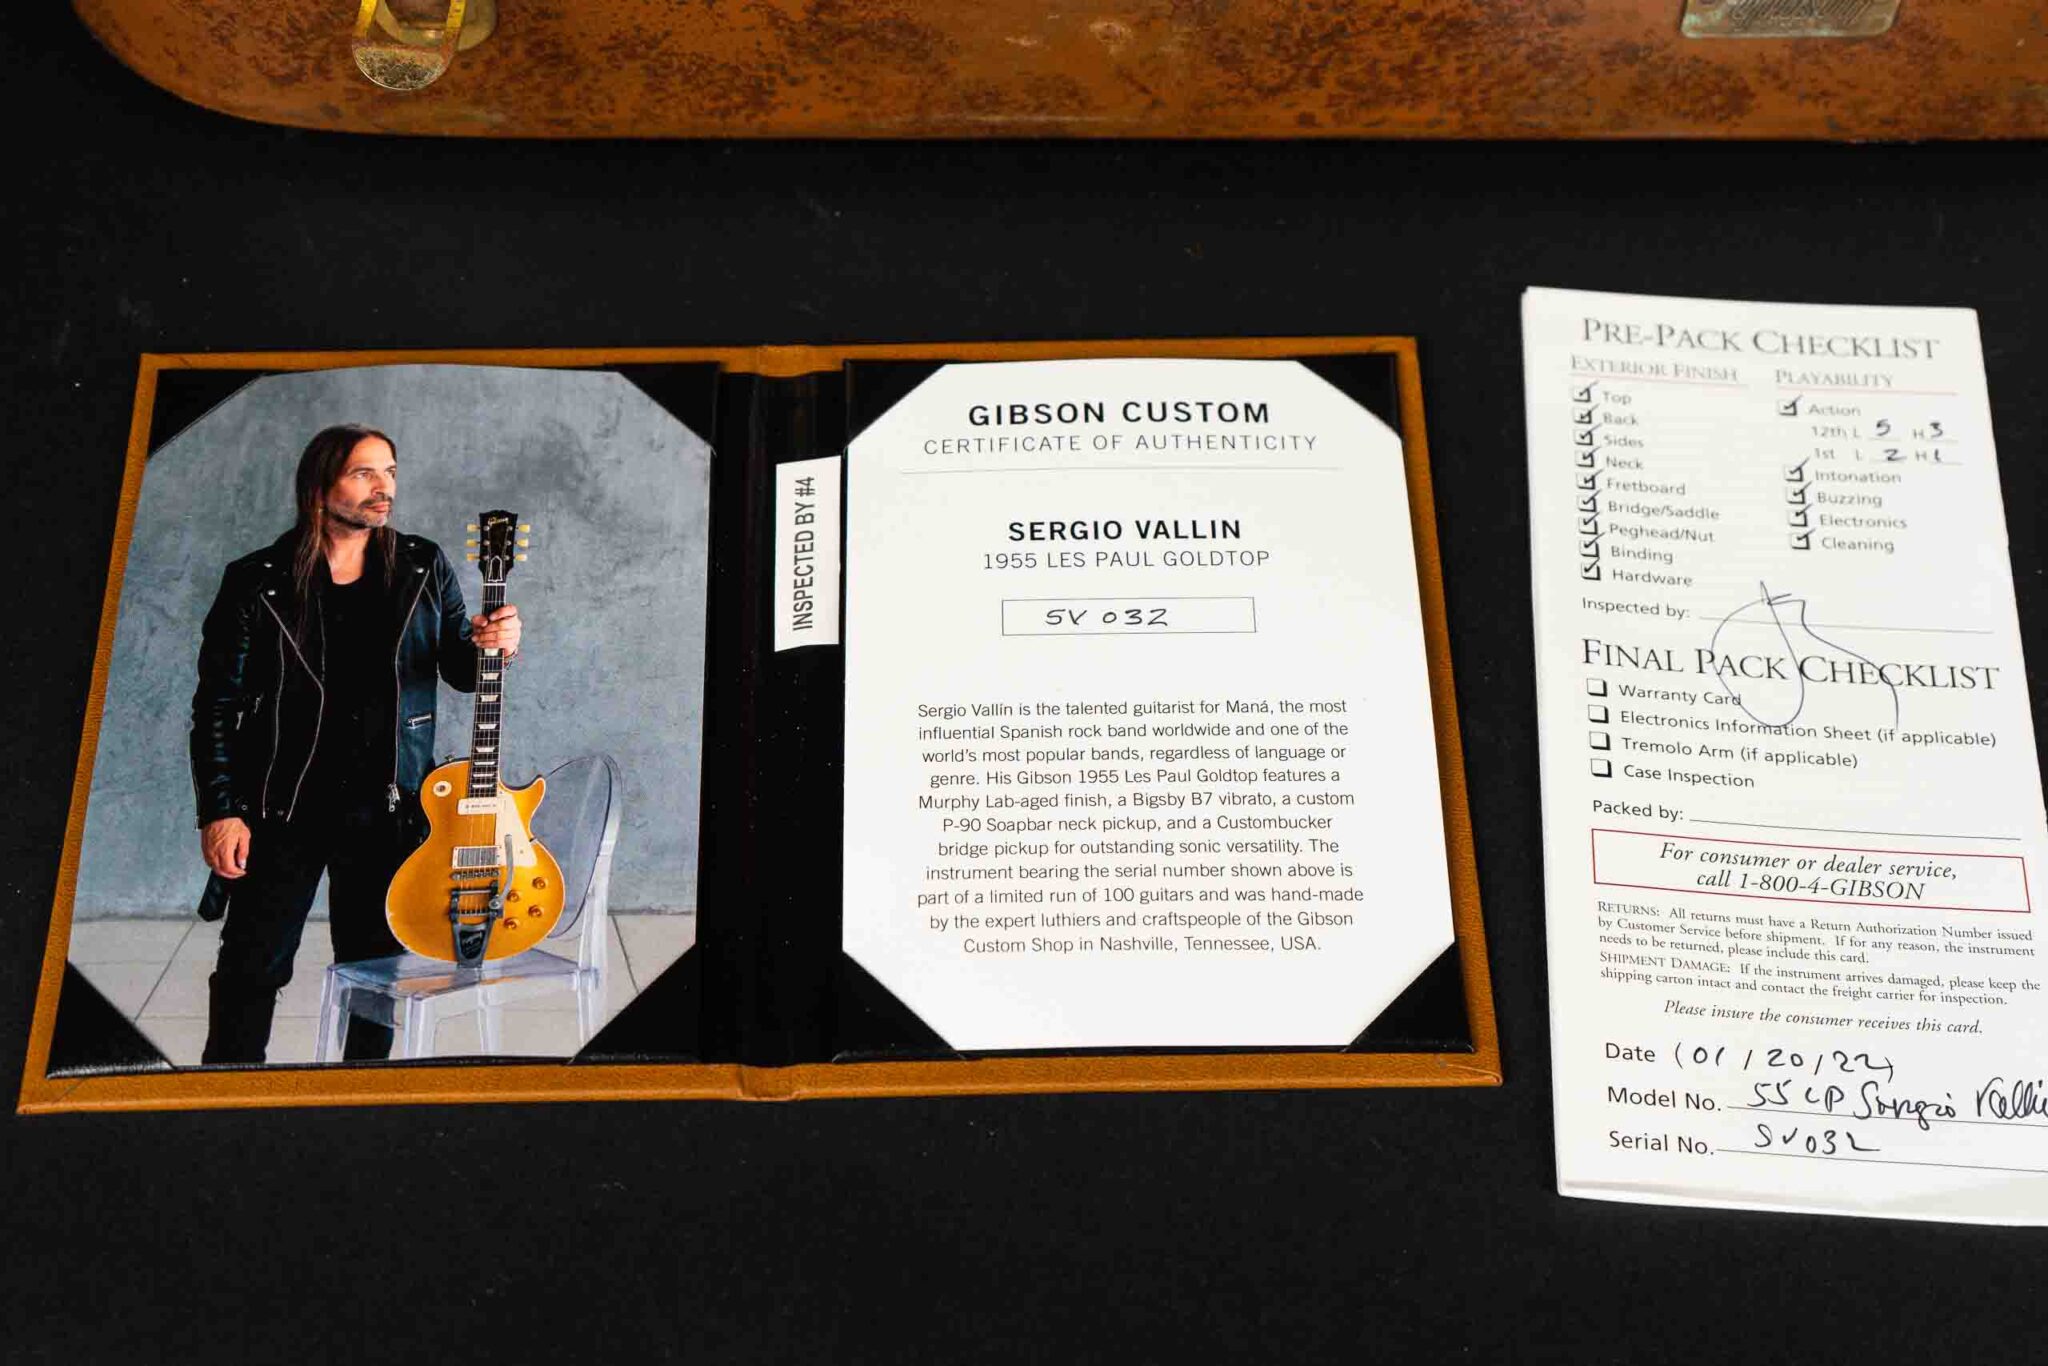 INSPECTED BY #4
GIBSON CUSTOM
CERTIFICATE OF AUTHENTICITY
SERGIO VALLIN
1955 LES PAUL GOLDTOP
SV 032
Sergio Vallín is the talented guitarist for Maná, the most
influential Spanish rock band worldwide and one of the
world's most popular bands, regardless of language or
genre. His Gibson 1955 Les Paul Goldtop features a
Murphy Lab-aged finish, a Bigsby B7 vibrato, a custom
P-90 Soapbar neck pickup, and a Custombucker
bridge pickup for outstanding sonic versatility. The
instrument bearing the serial number shown above is
part of a limited run of 100 guitars and was hand-made
by the expert luthiers and craftspeople of the Gibson
Custom Shop in Nashville, Tennessee, USA.
PRE-PACK CHECKLIST
EXTERIOR FINISH
Top
Back
Sides
Neck
Fretboard
Bridge/Saddle
Peghead/Nut
Binding
Hardware
PLAYABILITY
Action
12th L 5 H 3
1st L 2 H 1
Intonation
Buzzing
Electronics
Cleaning
Inspected by:
FINAL PACK CHECKLIST
Warranty Card
Electronics Information Sheet (if applicable)
Tremolo Arm (if applicable)
Case Inspection
Packed by:
For consumer or dealer service,
call 1-800-4-GIBSON
RETURNS: All returns must have a Return Authorization Number issued
by Customer Service before shipment. If for any reason, the instrument
needs to be returned, please include this card.
SHIPMENT DAMAGE: If the instrument arrives damaged, please keep the
shipping carton intact and contact the freight carrier for inspection.
Please insure the consumer receives this card.
Date (01/20/22)
Model No. 55 LP Sergio Valli
Serial No. SV032